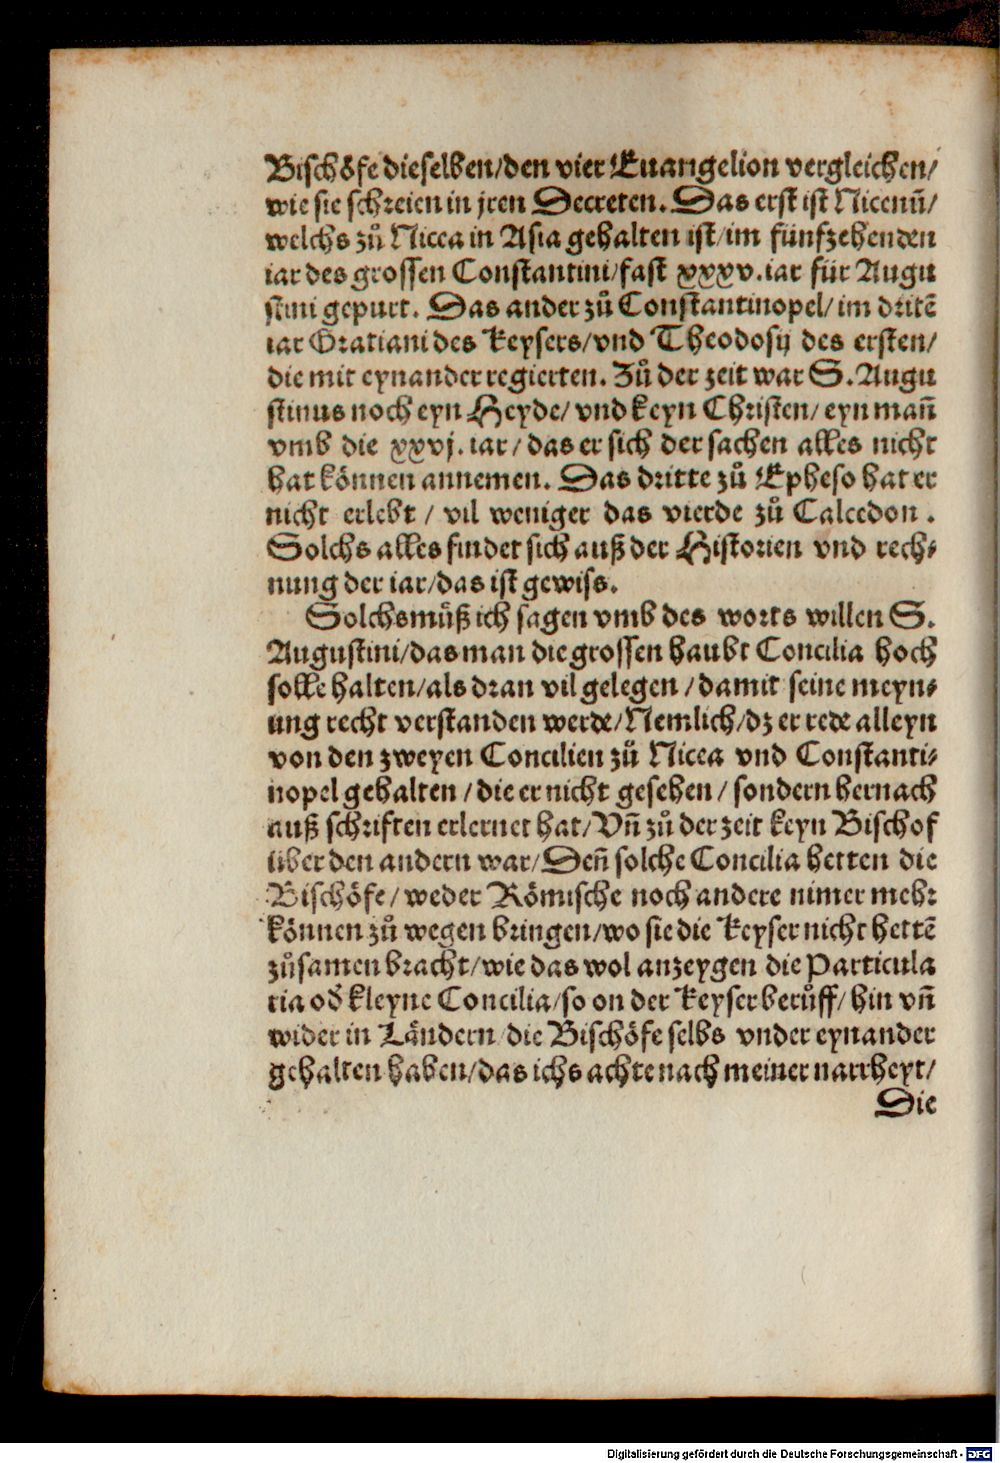 Bischöfe dieselben/den vier Euangelion vergleichen/
wie sie schreien in jren Decreten. Das erst ist Nicenū/
welchs zů Nicea in Asia gehalten ist/im fünfzehenden
iar des grossen Constantini/fast xxxv. iar für Augu
stini gepurt. Das ander zů Constantinopel/im dritē
iar Gratiani des Keysers/vnd Theodosij des ersten/
die mit eynander regierten. Zů der zeit war S. Augu
stinus noch eyn Heyde/ vnd keyn Christen/ eyn mañ
vmb die xxvj. iar/das er sich der sachen alles nicht
hat können annemen. Das dritte zů Epheso hat er
nicht erlebt / vil weniger das vierde zů Calcedon.
Solchs alles findet sich auß der Historien vnd rech⸗
nung der iar/das ist gewiss.
Solchs můß ich sagen vmb des worts willen S.
Augustini/das man die grossen haubt Concilia hoch
solle halten/als dran vil gelegen/damit seine meyn⸗
ung recht verstanden werde/Nemlich/dz er rede alleyn
von den zweyen Concilien zů Nicea vnd Constanti⸗
nopel gehalten/die er nicht gesehen/sondern hernach
auß schriften erlernet hat/Vñ zů der zeit keyn Bischof
über den andern war/Deñ solche Concilia hetten die
Bischöfe/weder Römische noch andere nimer mehr
können zů wegen bringen/wo sie die Keyser nicht hettē
zůsamen bracht/wie das wol anzeygen die Particula
ria oď kleyne Concilia/so on der Keyser berůff/hin vñ
wider in Ländern/die Bischöfe selbs vnder eynander
gehalten haben/das ichs achte nach meiner narrheyt/
Die
Digitalisierung gefördert durch die Deutsche Forschungsgemeinschaft - DFG